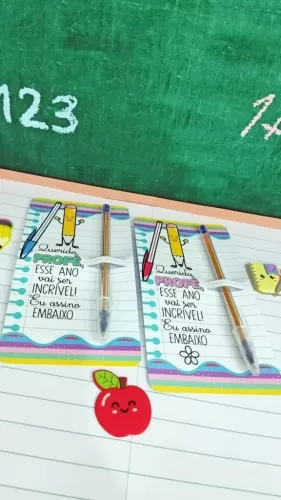 123
1+
Querida
PROFÊ,
ESSE ANO
vai ser
INCRÍVEL!
Eu assino
EMBAIXO
Querida
PROFÊ,
ESSE ANO
vai ser
INCRÍVEL!
Eu assino
EMBAIXO